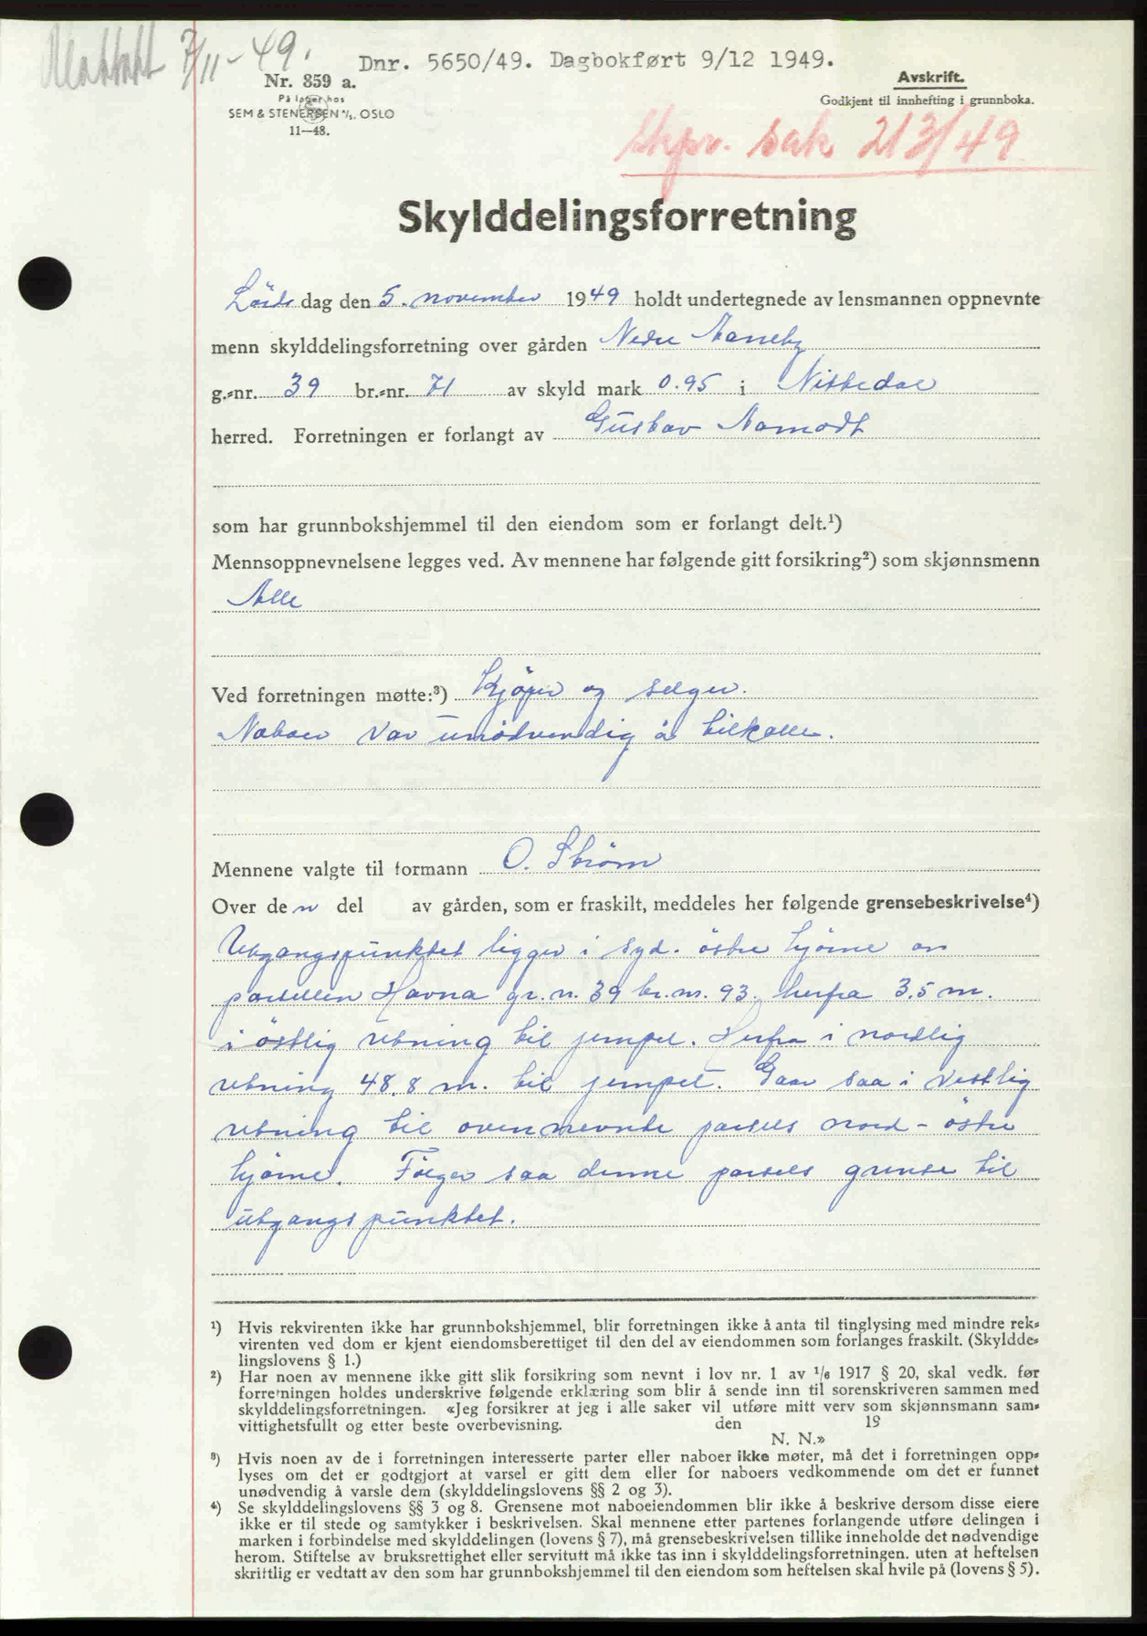 Mottatt 7/11-49.
Dnr. 5650/49. Dagbokført 9/12 1949.
Nr. 859 a.
På lager hos
SEM & STENERSEN A/S. OSLO
11—48.
Avskrift.
Godkjent til innhefting i grunnboka.
Skpv. sak 213/49
Skylddelingsforretning
Lördag den 5. november 1949 holdt undertegnede av lensmannen oppnevnte
menn skylddelingsforretning over gården Nedre Aaneby
g.-nr. 39 br.-nr. 71 av skyld mark 0.95 i Nittedal
herred. Forretningen er forlangt av Gustav Aamodt
som har grunnbokshjemmel til den eiendom som er forlangt delt.¹)
Mennsoppnevnelsene legges ved. Av mennene har følgende gitt forsikring²) som skjønnsmenn
Alle
Ved forretningen møtte:³) Kjöper og selger.
Naboer var unödvendig å tilkalle.
Mennene valgte til formann O. Ström
Over den del av gården, som er fraskilt, meddeles her følgende grensebeskrivelse⁴)
Utgangspunktet ligger i syd. östre hjörne av
parsellen Havna gr. n. 39 br. nr. 93. herfra 3.5 m.
i östlig retning til jernpel. Herfra i nordlig
retning 48,8 m. til jernpel. Gaar saa i vestlig
retning til ovennevnte parsels nord - östre
hjörne. Fölger saa denne parsels grense til
utgangspunktet.
¹) Hvis rekvirenten ikke har grunnbokshjemmel, blir forretningen ikke å anta til tinglysing med mindre rek-
virenten ved dom er kjent eiendomsberettiget til den del av eiendommen som forlanges fraskilt. (Skyldde-
lingslovens § 1.)
²) Har noen av mennene ikke gitt slik forsikring som nevnt i lov nr. 1 av ¹/6 1917 § 20, skal vedk. før
forretningen holdes underskrive følgende erklæring som blir å sende inn til sorenskriveren sammen med
skylddelingsforretningen. «Jeg forsikrer at jeg i alle saker vil utføre mitt verv som skjønnsmann sam-
vittighetsfullt og etter beste overbevisning. den 19
N. N.»
³) Hvis noen av de i forretningen interesserte parter eller naboer ikke møter, må det i forretningen opp-
lyses om det er godtgjort at varsel er gitt dem eller for naboers vedkommende om det er funnet
unødvendig å varsle dem (skylddelingslovens §§ 2 og 3).
⁴) Se skylddelingslovens §§ 3 og 8. Grensene mot naboeiendommen blir ikke å beskrive dersom disse eiere
ikke er til stede og samtykker i beskrivelsen. Skal mennene etter partenes forlangende utføre delingen i
marken i forbindelse med skylddelingen (lovens § 7), må grensebeskrivelsen tillike inneholde det nødvendige
herom. Stiftelse av bruksrettighet eller servitutt må ikke tas inn i skylddelingsforretningen. uten at heftelsen
skriftlig er vedtatt av den som har grunnbokshjemmel til den eiendom som heftelsen skal hvile på (lovens § 5).